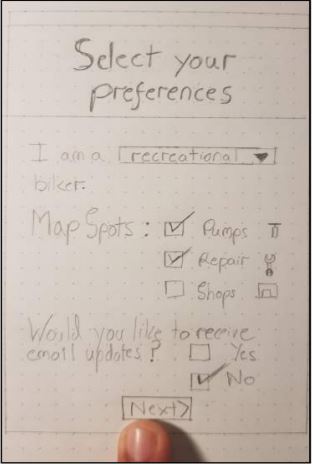 Select your
preferences
I am a recreational
biker.
Map Spots: Pumps
Repair
Shops
Would you like to receive
email updates? Yes
No
Next>